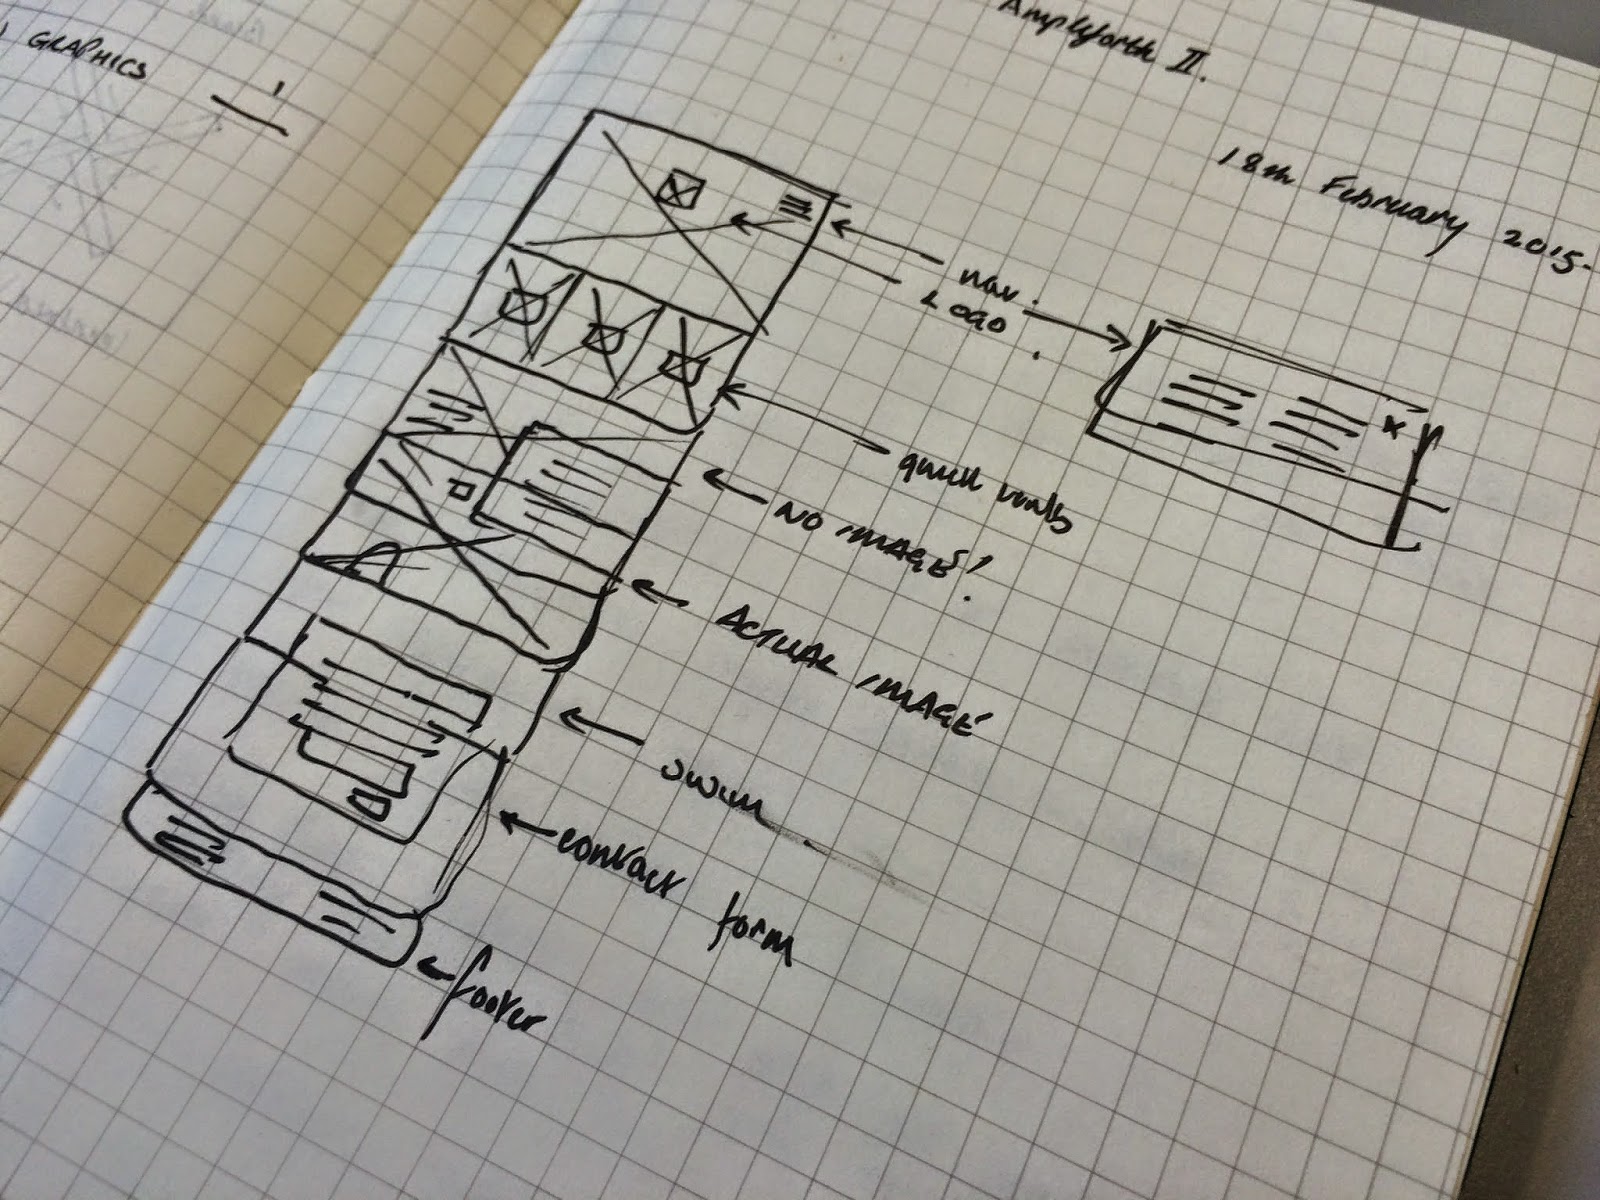 ) GRAPHICS
Ampleforth II.
18th February 2015.
nav.
LOGO
quick
NO IMAGE!
ACTUAL IMAGE
swim
contact form
footer